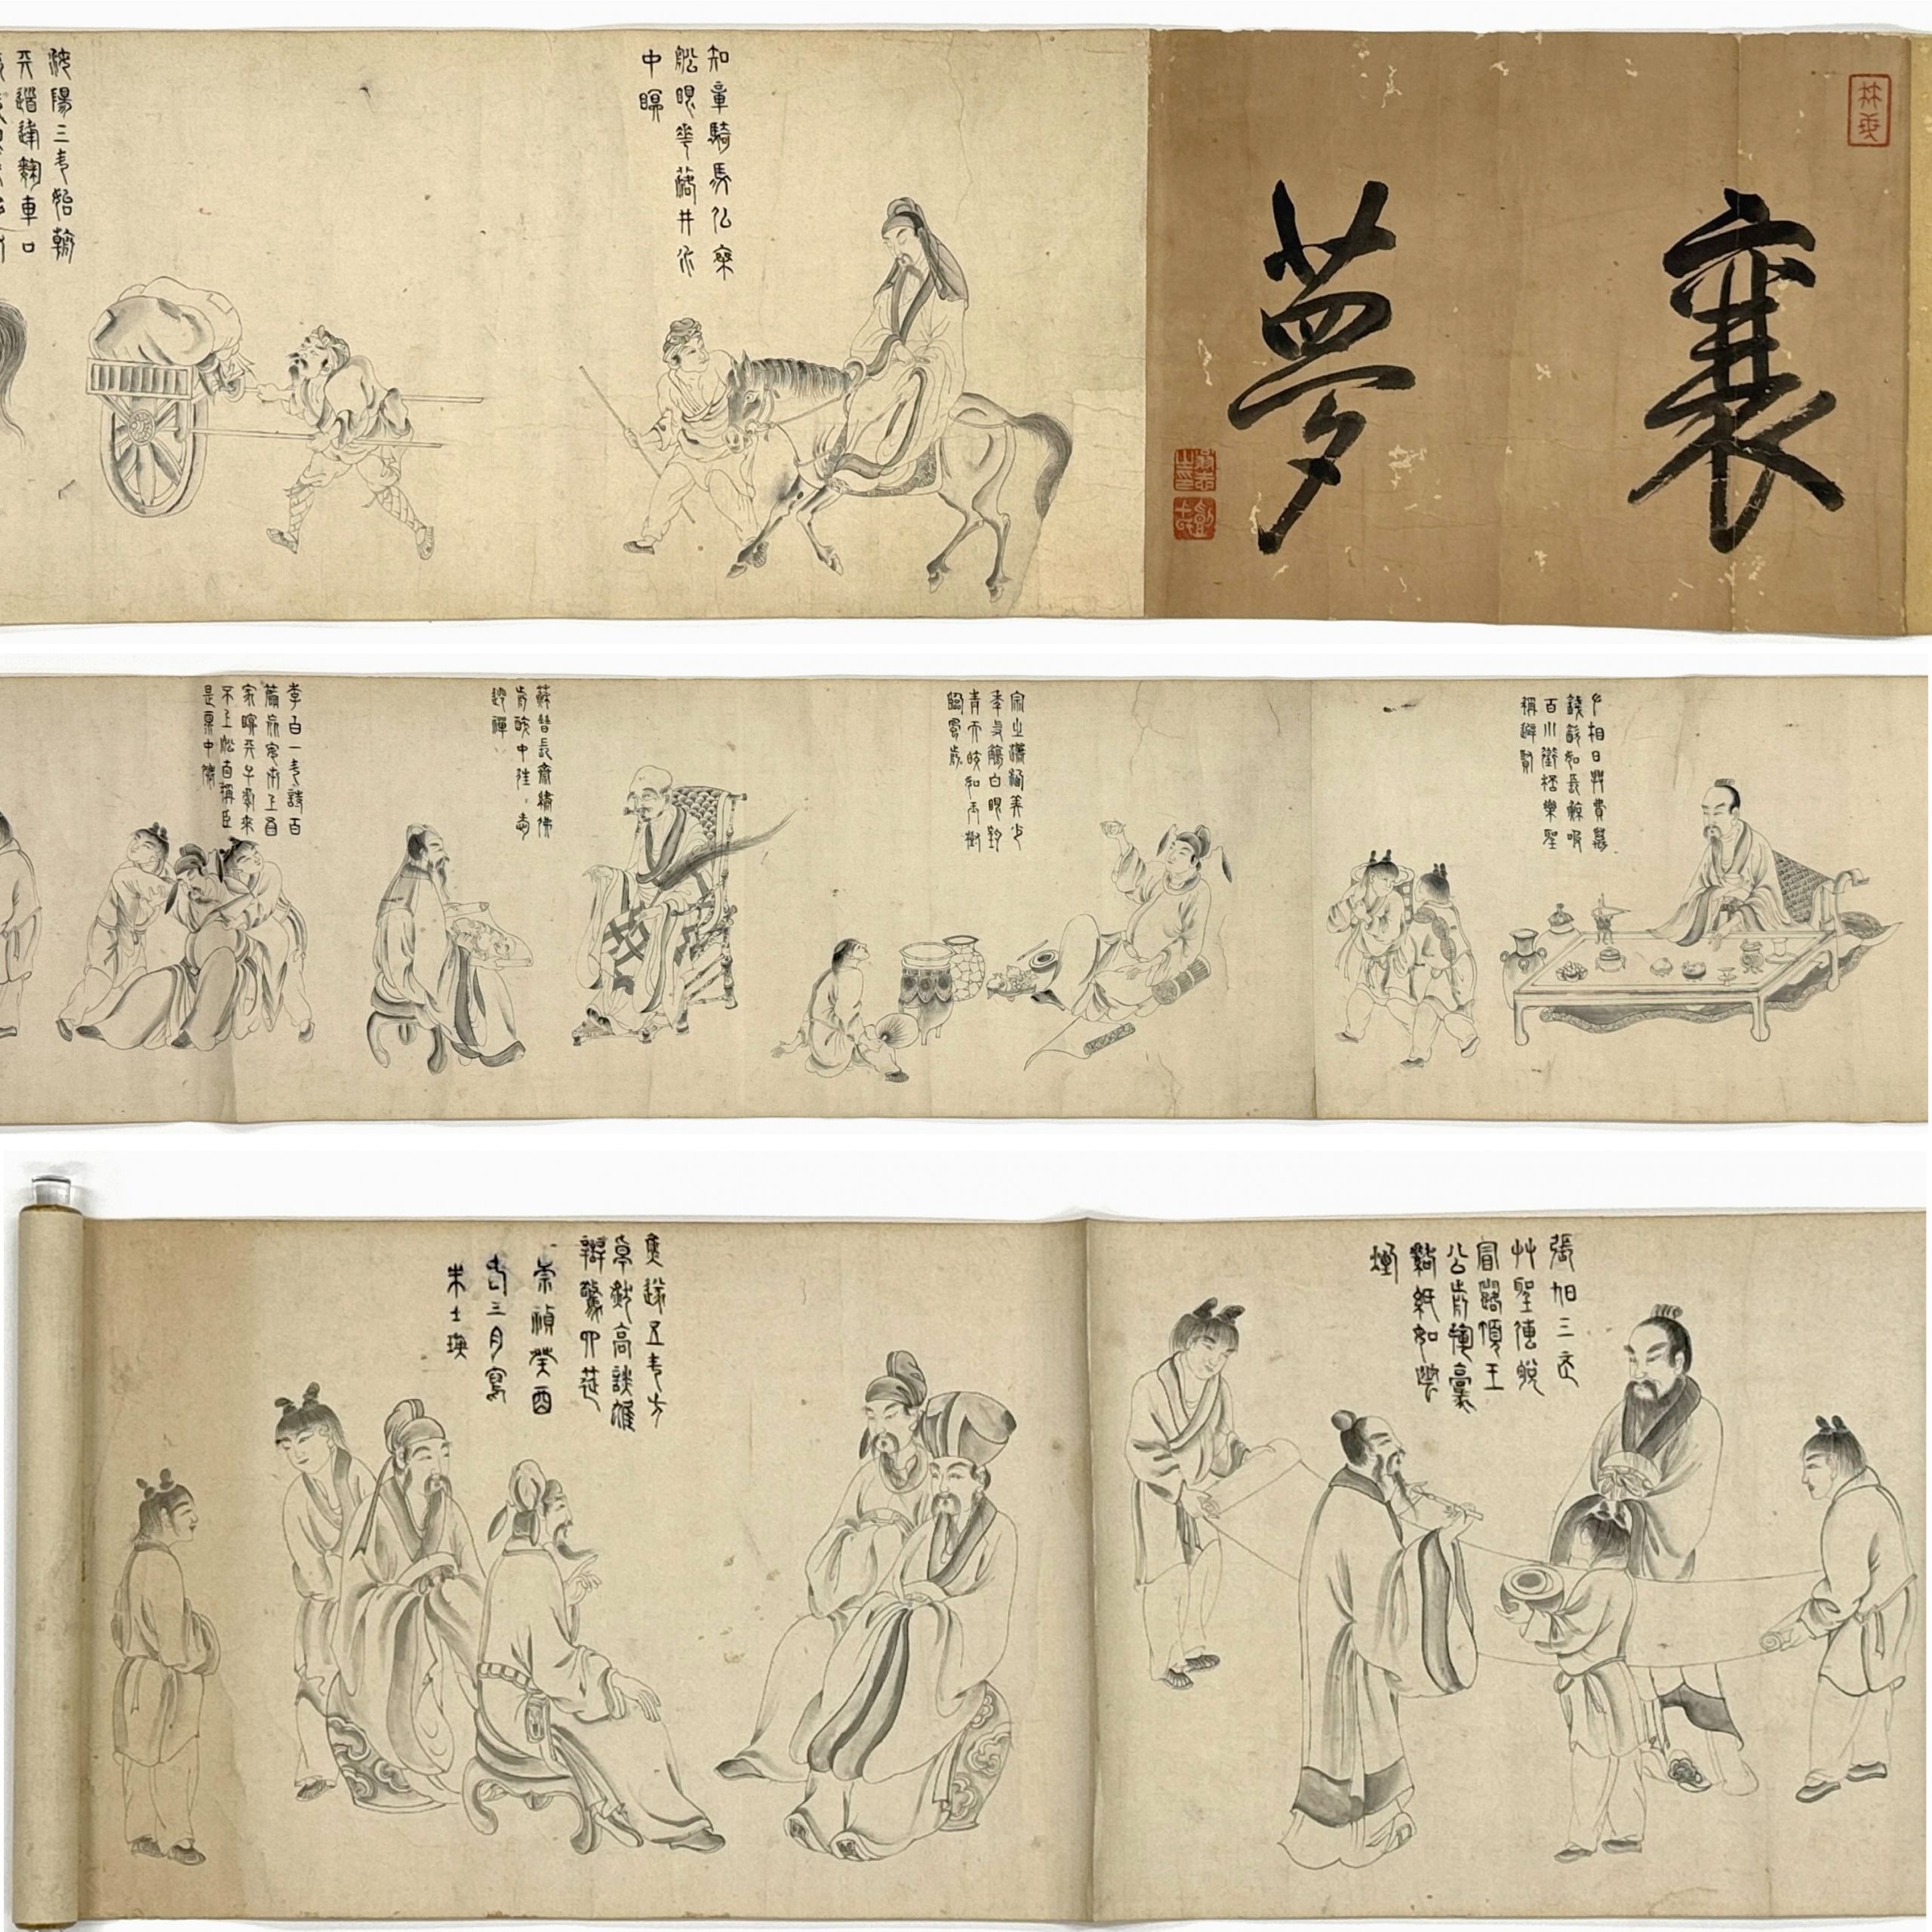 襄夢
知章騎馬似乘
船眼花落井水
中眠
汝陽三斗始朝
天道逢麴車口
左相日興費萬
錢飲如長鯨吸
百川銜杯樂聖
稱避賢
宗之瀟洒美少
年舉觴白眼望
青天皎如玉樹
臨風前
蘇晉長齋繡佛
前醉中往往愛
逃禪
李白一斗詩百
篇長安市上酒
家眠天子呼來
不上船自稱臣
是酒中僊
張旭三杯
艸聖傳脫
帽露頂王
公前揮毫
落紙如雲
煙
焦遂五斗方
卓然高談雄
辯驚四筵
崇禎癸酉
春三月寫
朱士瑛